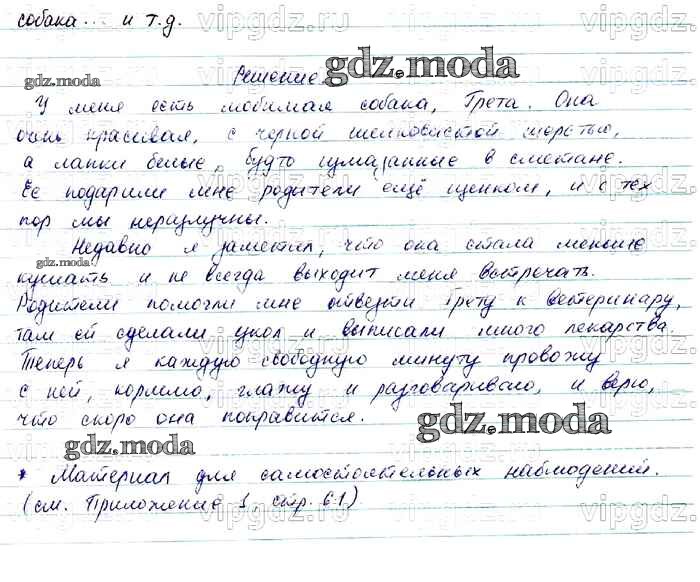 собака... и т.д.
Решение
У меня есть любимая собака, Грета. Она
очень красивая, с черной шелковистой шерстью,
а лапки белые, будто измазанные в сметане.
Ее подарили мне родители ещё щенком, и с тех
пор мы неразлучны.
Недавно я заметил, что она стала меньше
кушать и не всегда выходит меня встречать.
Родители помогли мне отвезти Грету к ветеринару,
там ей сделали укол и выписали много лекарства.
Теперь я каждую свободную минуту провожу
с ней, кормлю, глажу и разговариваю, и верю,
что скоро она поправится.
* Материал для самостоятельных наблюдений.
(см. Приложение 1, стр. 61)
gdz.moda
gdz.moda
gdz.moda
gdz.moda
gdz.moda
vipgdz.ru